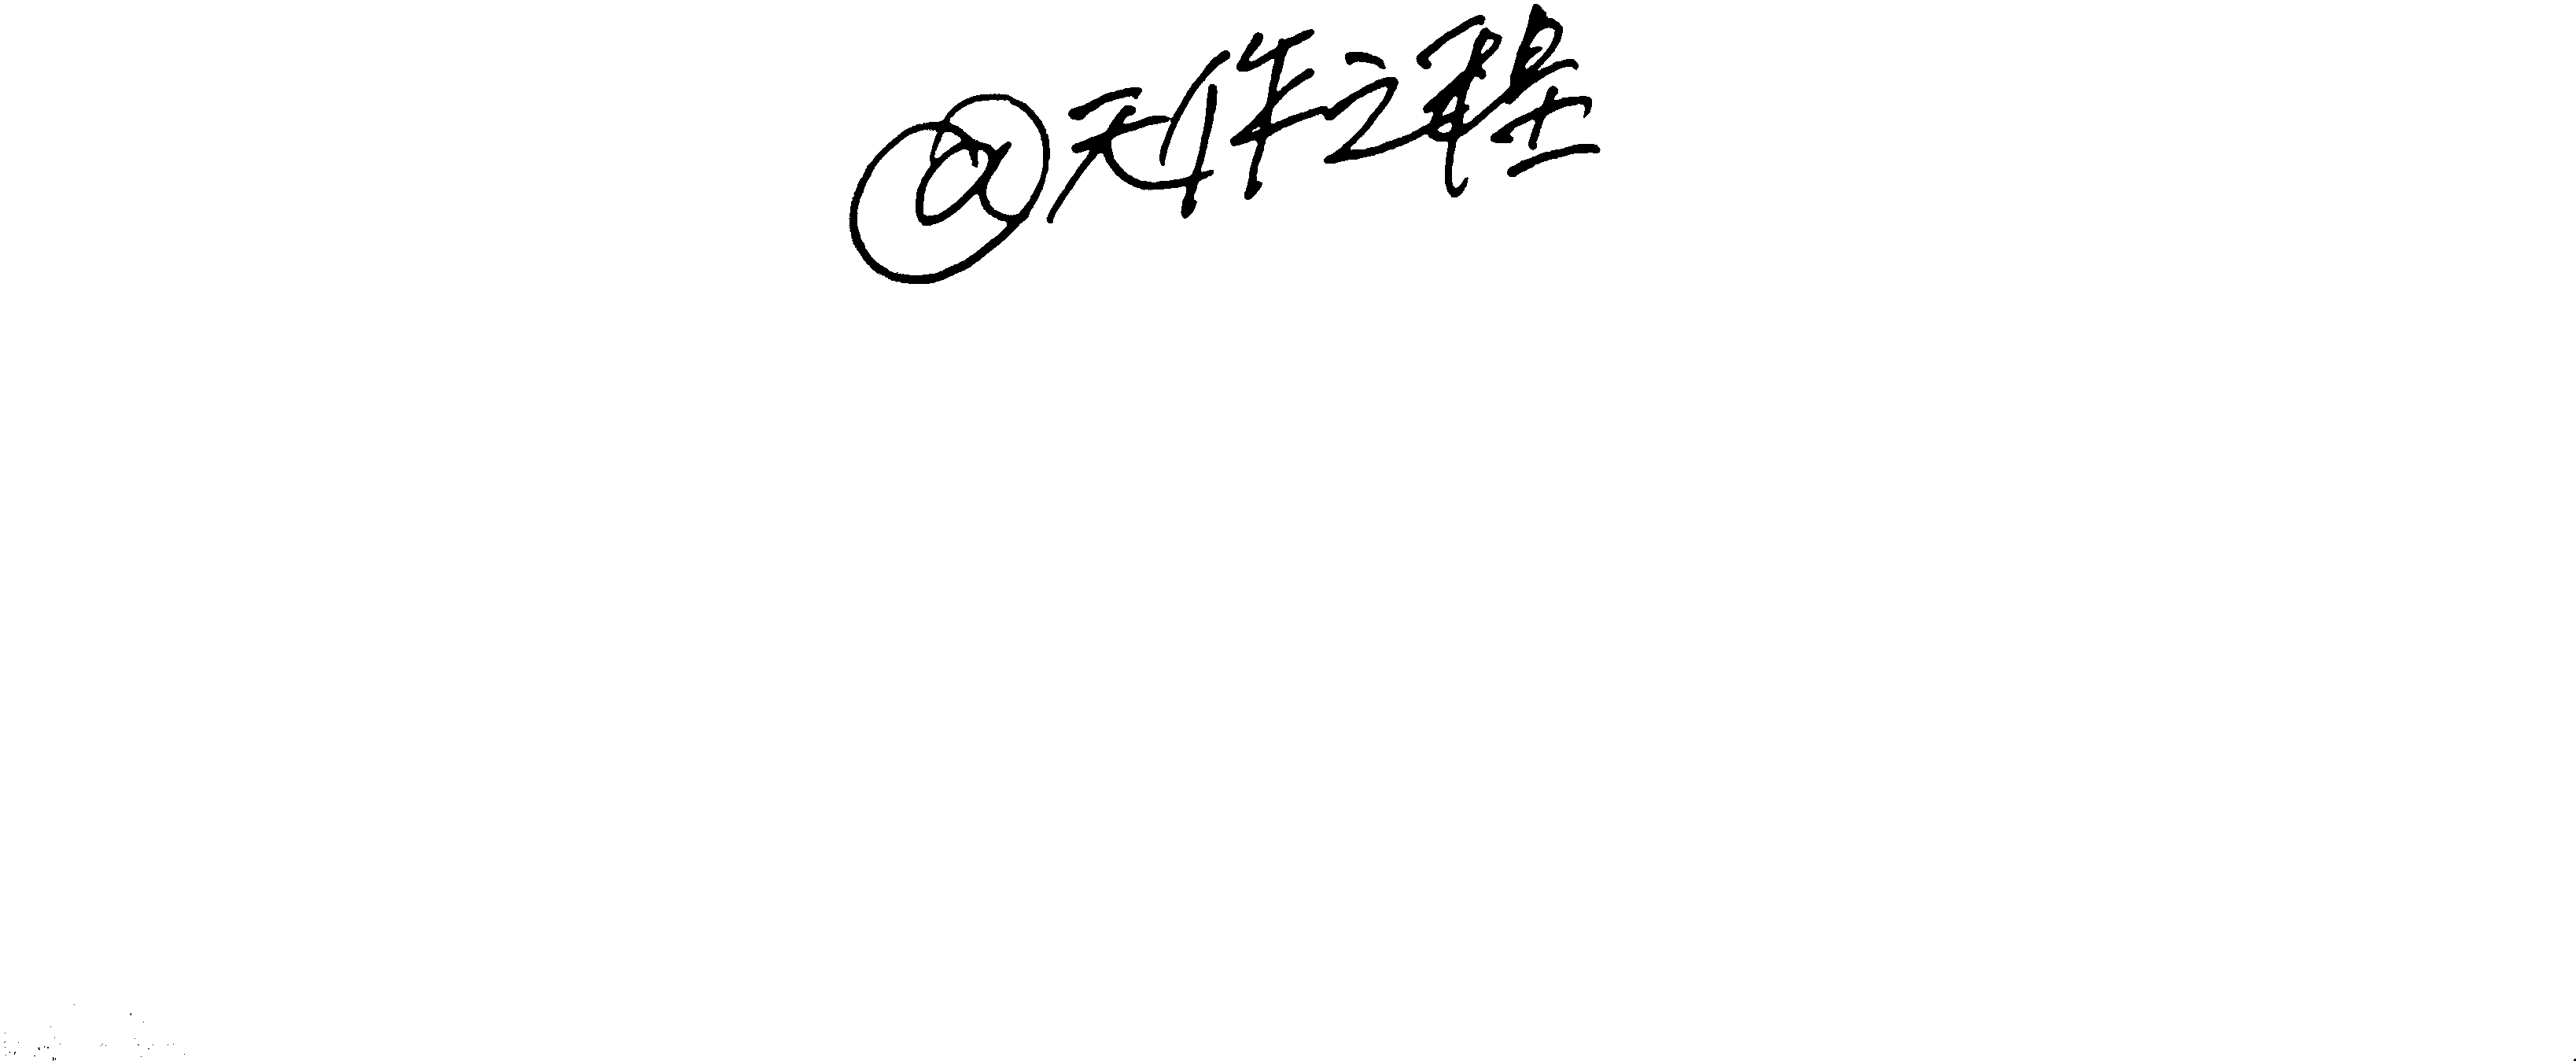 @天作之程